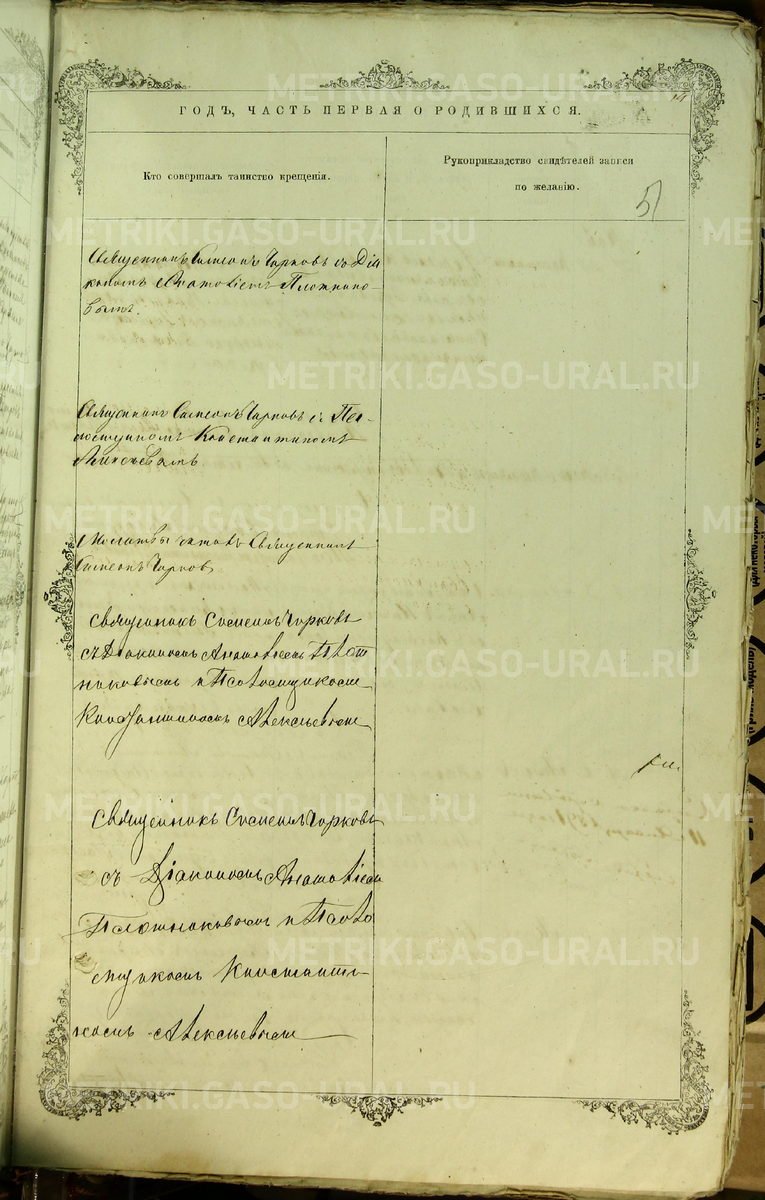 ГОДЪ, ЧАСТЬ ПЕРВАЯ О РОДИВШИХСЯ.
Кто совершалъ таинство крещенія.
Рукоприкладство свидѣтелей записи
по желанію.
51
Священникъ Симеонъ Чирковъ съ Діа
кономъ Анатоліемъ Плотнико-
вымъ.
Священникъ Симеонъ Чирковъ съ Пса-
ломщикомъ Константиномъ
Алексѣевымъ
Молитвы читалъ Священникъ
Симеонъ Чирковъ
Священникъ Симеонъ Чирковъ
съ Діакономъ Анатоліемъ Плот
никовымъ и Псаломщикомъ
Константиномъ Алексѣевымъ
Священникъ Симеонъ Чирковъ
съ Діакономъ Анатоліемъ
Плотниковымъ и Псало
мщикомъ Константи-
номъ Алексѣевымъ
METRIKI.GASO-URAL.RU